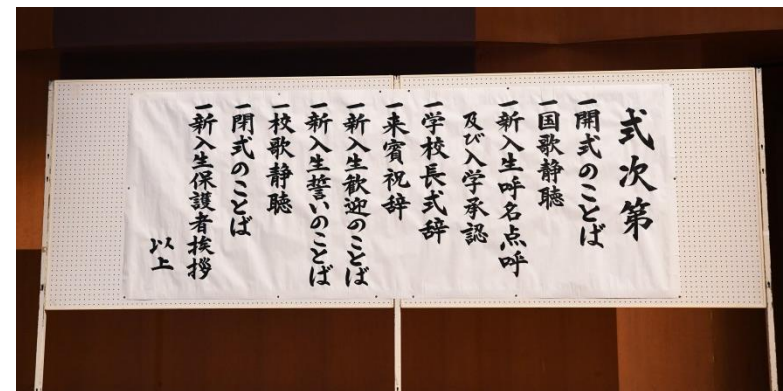 式次第
一開式のことば
一国歌静聴
一新入生呼名点呼
及び入学承認
一学校長式辞
一来賓祝辞
一新入生歓迎のことば
一新入生誓いのことば
一校歌静聴
一閉式のことば
一新入生保護者挨拶
以上